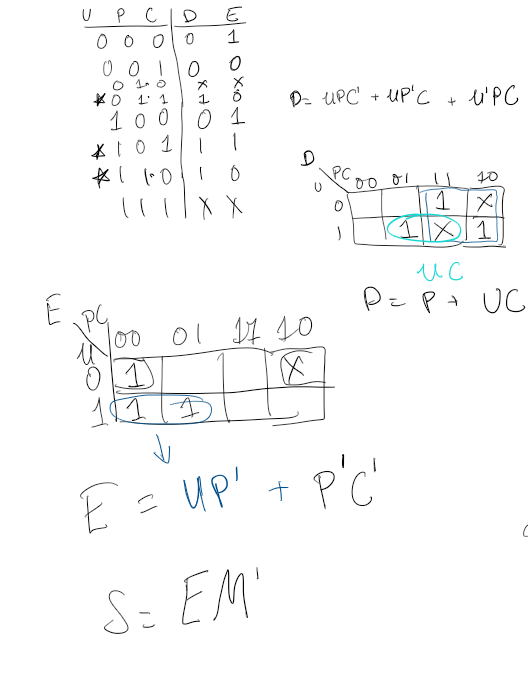 U P C | D E
0 0 0 | 0 1
0 0 1 | 0 0
0 1 0 | X X
* 0 1 1 | 1 0
1 0 0 | 0 1
* 1 0 1 | 1 1
* 1 1 0 | 1 0
1 1 1 | X X
D = UPC' + UP'C + U'PC
D
U \ PC 00 01 11 10
0 1 X
1 1 X 1
UC
D = P + UC
E
U \ PC 00 01 11 10
0 1 X
1 1 1
E = UP' + P'C'
S = EM'